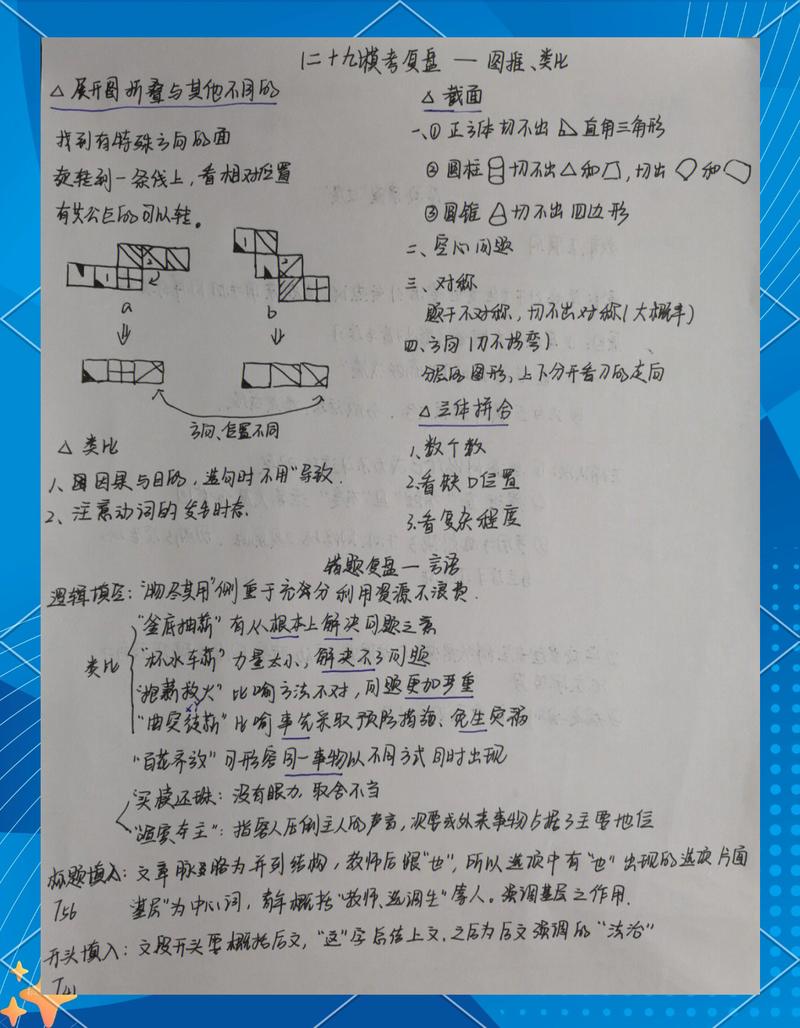 二十九模考复盘 — 图推、类比
△ 展开图折叠与其他不同的
找到有特殊方向的面
旋转到一条线上，看相对位置
有公共点的可以转。
a
b
方向、位置不同
△ 类比
1、因果与目的，造句时不用"导致.
2、注意动词的发生时态.
△ 截面
一、① 正方体切不出 直角三角形
② 圆柱 切不出△和 ，切出 和
③ 圆锥 切不出四边形
二、空心问题
三、对称
题干不对称，切不出对称(大概率)
四、方向(刀不拐弯)
分层的图形，上下分开看刀的走向
△ 立体拼合
1.数个数
2.看缺口位置
3.看复杂程度
错题复盘 — 言语
逻辑填空："物尽其用"侧重于充分利用资源不浪费.
类比
"釜底抽薪"有从根本上解决问题之意
"杯水车薪"力量太小，解决不了问题
"抱薪救火"比喻方法不对，问题更加严重
"曲突徙薪"比喻事先采取预防措施、免生灾祸
"百花齐放"可形容同一事物以不同方式同时出现
"买椟还珠：没有眼力，取舍不当
"喧宾夺主"：指客人压倒主人的声音，次要或外来事物占据了主要地位
标题填入：文章脉络为并列结构，教师后跟"也"，所以选项中有"也"出现的选项片面
T56
基层"为中心词，概括"教师、选调生"等人。强调基层之作用.
开头填入：文段开头要概括后文，"这"字总结上文，之后为后文强调的"法治"
T41